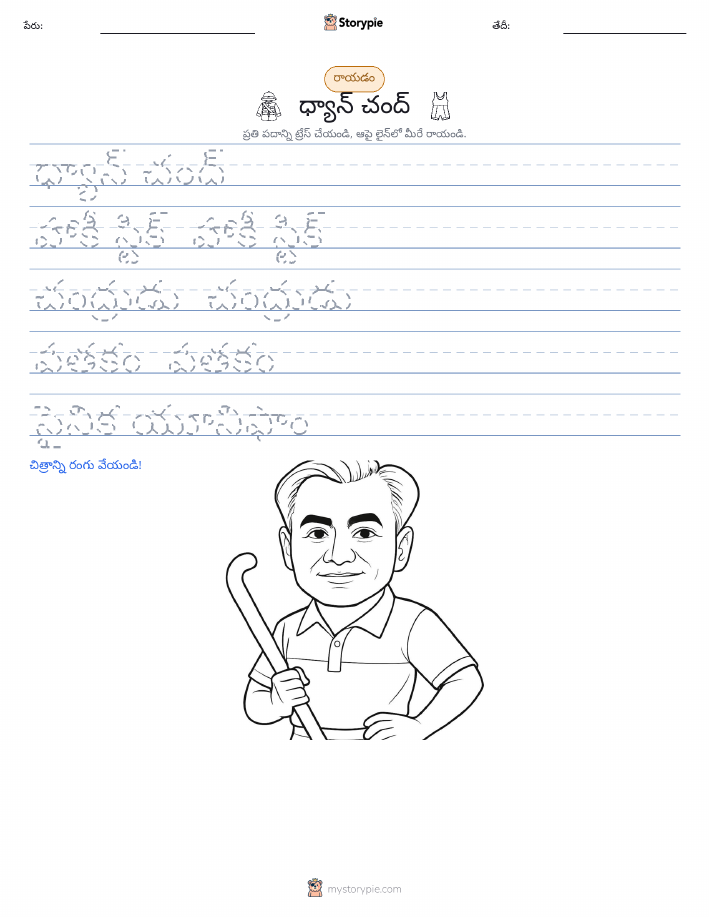 పేరు:
Storypie
తేదీ:
రాయడం
ధ్యాన్ చంద్
ప్రతి పదాన్ని ట్రేస్ చేయండి, ఆపై లైన్‌లో మీరే రాయండి.
ధ్యాన్ చంద్
హాకీ స్టిక్ హాకీ స్టిక్
చంద్రుడు చంద్రుడు
పతకం పతకం
సైనిక యూనిఫాం
చిత్రాన్ని రంగు వేయండి!
mystorypie.com